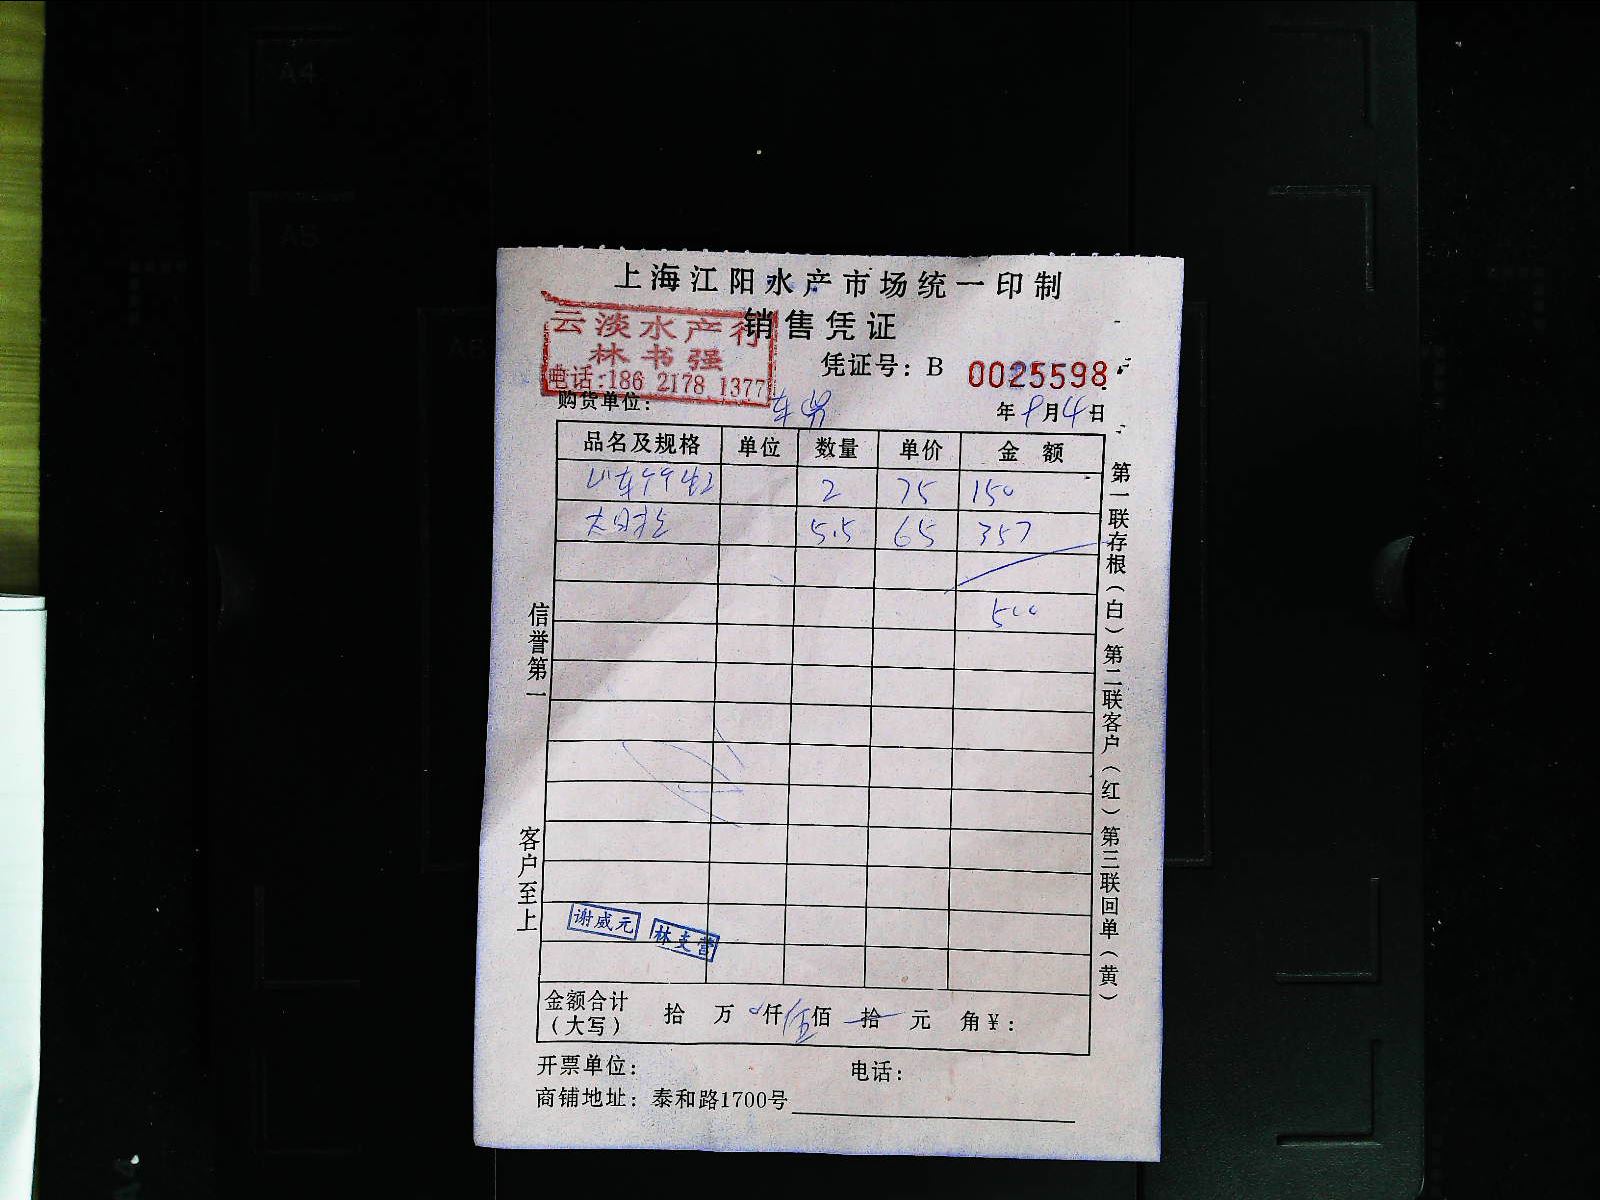 上海江阳水产市场统一印制
销售凭证
云淡水产行
林书强
电话:186 2178 1377
凭证号: B 0025598
购货单位:
年 9月4日
品名及规格 单位 数量 单价 金额
2 75 150
5.5 65 357
500
信誉第一
客户至上
第一联存根(白)第二联客户(红)第三联回单(黄)
谢威元
林支营
金额合计(大写) 拾 万 仟伍佰 拾 元 角¥:
开票单位: 电话:
商铺地址: 泰和路1700号
A4
A5